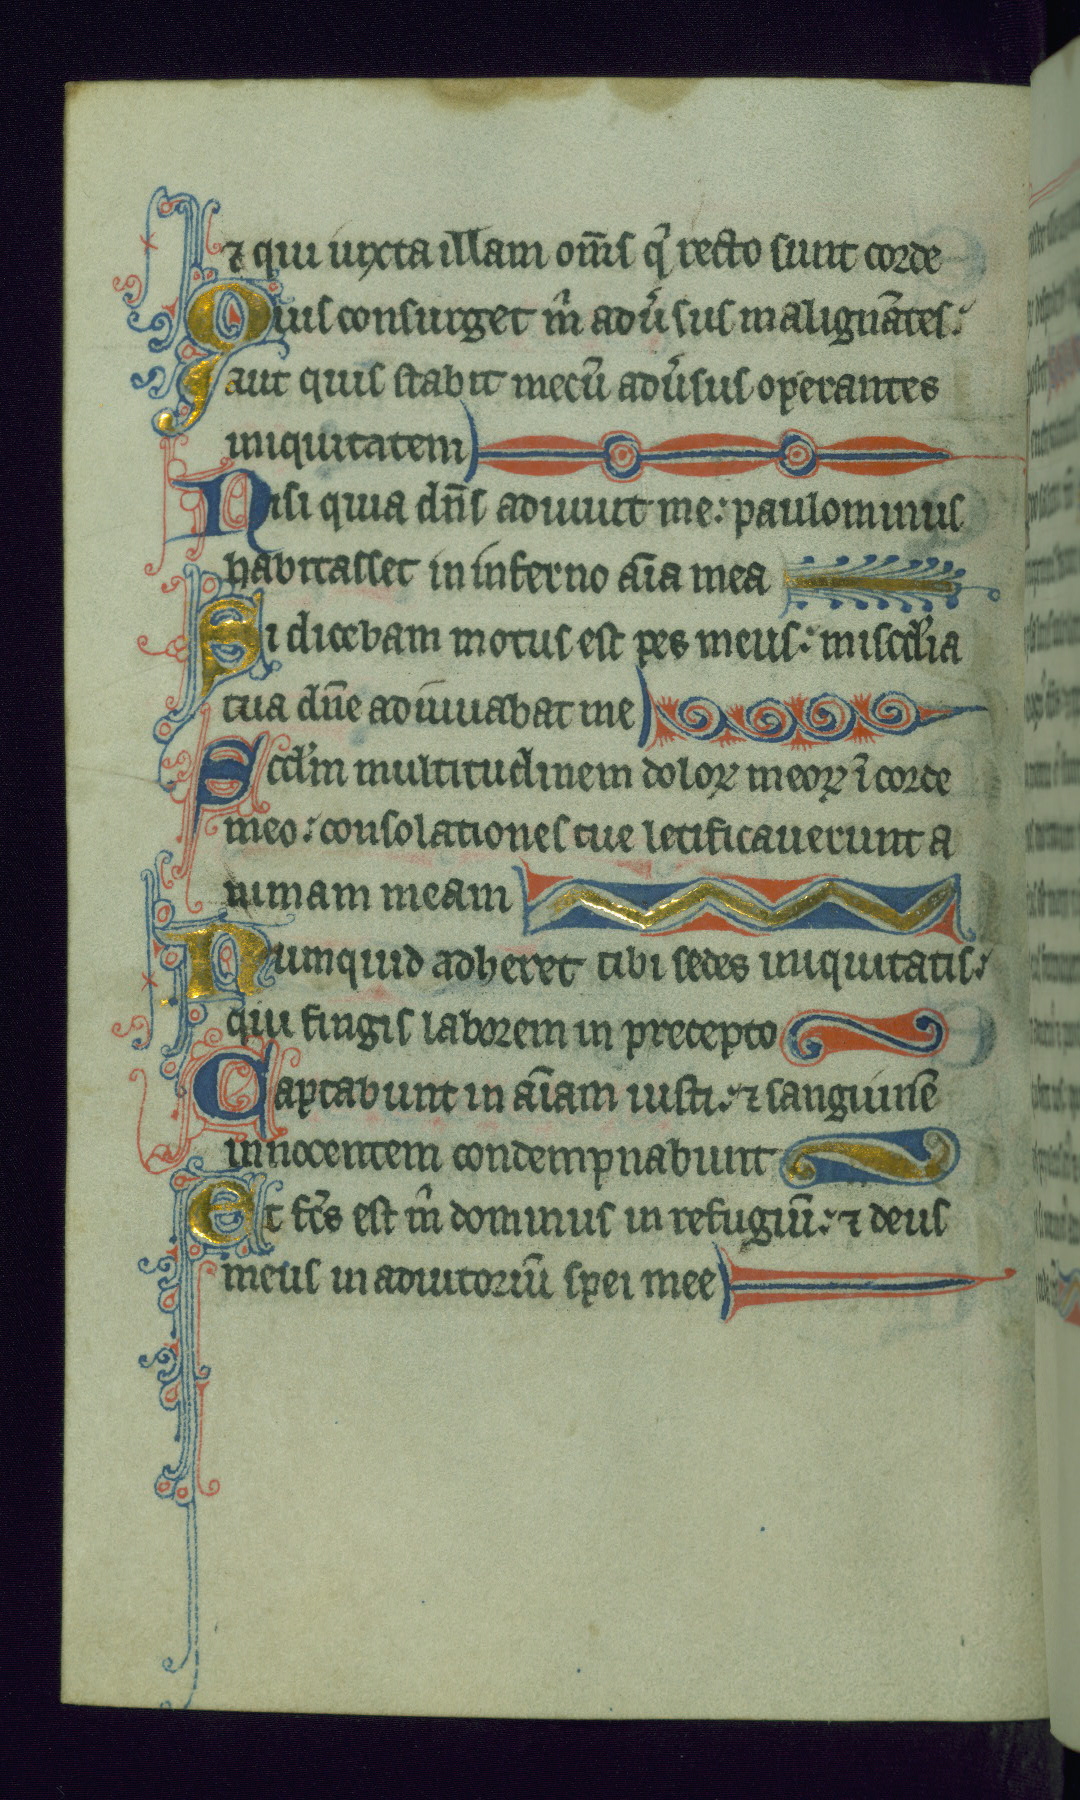 ⁊ qui iuxta illam om̄s q̓ recto sunt corde
Quis consurget m̓ adu̓sus malignātes:
aut quis stabit mecū adu̓sus operantes
iniquitatem
Nisi quia dn̄s adiuuit me: paulominus
habitasset in inferno aīa mea
Si dicebam motus est pes meus: miscd̓ia
tua dn̄e adiuuabat me
Scd̓m multitudinem doloꝝ meoꝝ ī corde
meo: consolationes tue letificauerunt a
nimam meam
Numquid adheret tibi sedes iniquitatis:
qui fingis laborem in precepto
Captabunt in aīam iusti: ⁊ sanguinē
innocentem condempnabunt
Et fc̄s est m̓ dominus in refugiū: ⁊ deus
meus in adiutoriū spei mee